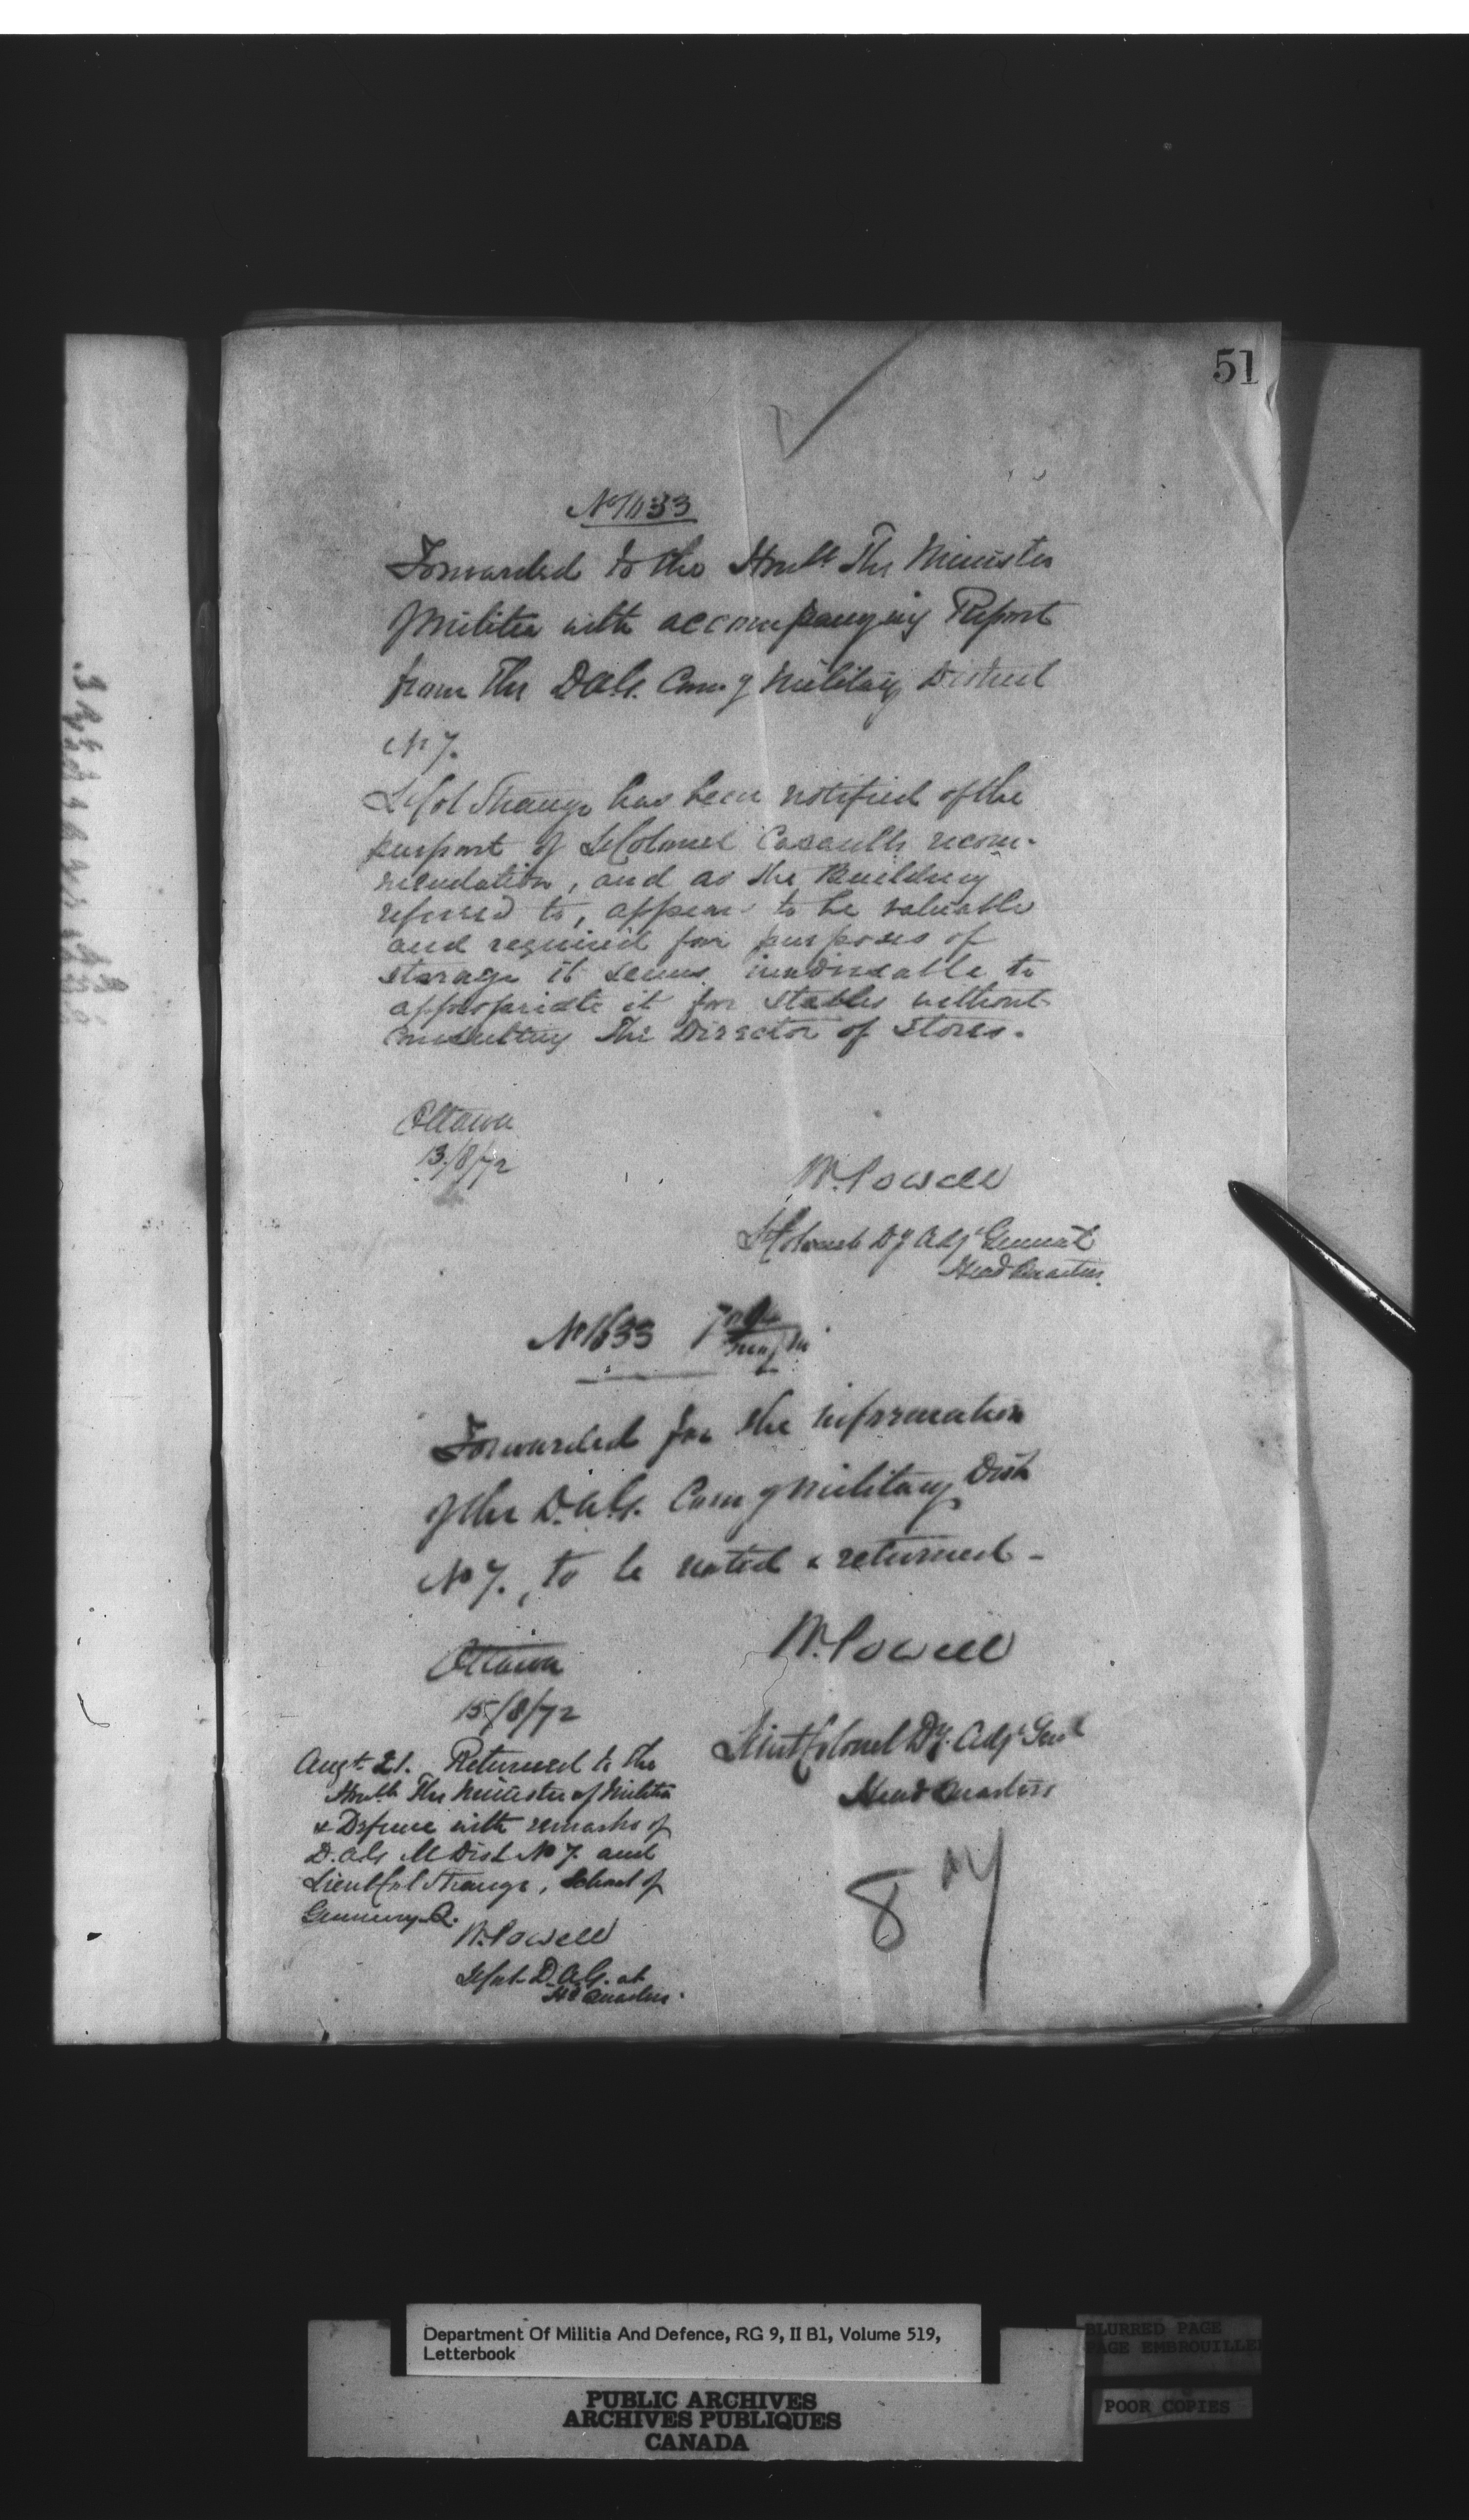 51
No 1633
Forwarded to the Honble The Minister
of Militia with accompanying Report
from The D.A.G. Comg Military District
No 7.
Lt Col Strange has been notified of the
purport of Lt Colonel Casaults recom-
mendation, and as the Building
referred to, appears to be valuable
and required for purposes of
storage it seems inadvisable to
appropriate it for stables without
consulting The Director of Stores.
Ottawa
13/8/72
W. Powell
Lt Colonel Dy Adjt General
Head Quarters.
No 1633
Forwarded for the information
of the D.A.G. Comg Military Dist
No 7., to be noted & returned -
Ottawa
15/8/72
W. Powell
Lieut Colonel Dy. Adjt Genl
Head Quarters
Augt 21. Returned to the
Honble The Minister of Militia
& Defence with remarks of
D.A.G M Dist No 7. and
Lieut Col Strange, School of
Gunnery Q.
W. Powell
Lt Col D.A.G. at
Hd Quarters.
Department Of Militia And Defence, RG 9, II B1, Volume 519,
Letterbook
PUBLIC ARCHIVES
ARCHIVES PUBLIQUES
CANADA
BLURRED PAGE
PAGE EMBROUILLE
POOR COPIES